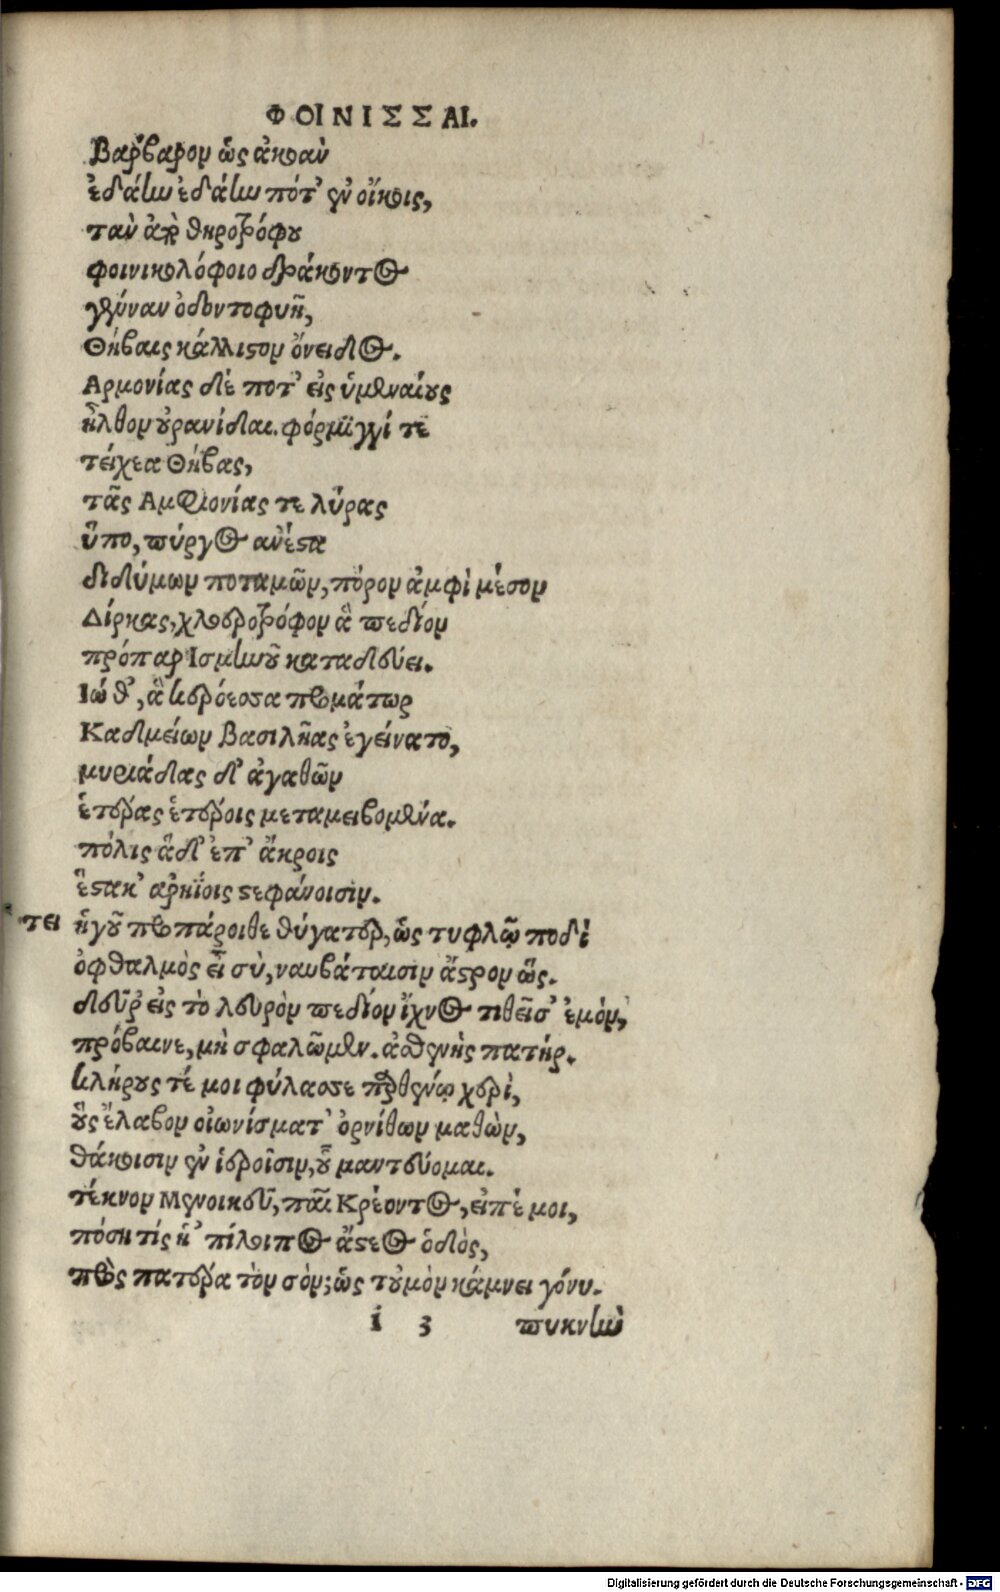 ΦΟΙΝΙΣΣΑΙ.
Βάρβαρον ὡς ἀκοὰν
ἐδάην ἐδάην πότ' ἐν οἴκοις,
τὰν ἀπὸ θηροτρόφου
φοινικολόφοιο δράκοντος
γένναν ὀδοντοφυῆ,
Θήβαις κάλλιστον ὄνειδος.
Αρμονίας δέ ποτ' εἰς ὑμεναίους
ἦλθον οὐρανίδαι. φόρμιγγί τε
τείχεα Θήβας,
τᾶς Αμφιονίας τε λύρας
ὕπο, πύργος ἀνέστα
διδύμων ποταμῶν, πόρον ἀμφὶ μέσον
Δίρκας, χλοεροτρόφον ἃ πεδίον
πρόπαρ Ισμηνοῦ καταδεύει.
Ιώ θ', ἃ κερόεσσα προμάτωρ
Καδμείων βασιλῆας ἐγείνατο,
μυριάδας δ' ἀγαθῶν
ἑτέρας ἑτέροις μεταμειβομένα.
πόλις ἅδ' ἐπ' ἄκροις
ἕστακ' ἀρηΐοις στεφάνοισιν.
τει ἡγοῦ προπάροιθε θύγατερ, ὡς τυφλῷ ποδὶ
ὀφθαλμὸς εἶ σὺ, ναυβάταισιν ἄστρον ὥς.
δεῦρ' εἰς τὸ λευρὸν πεδίον ἴχνος τιθεῖσ' ἐμόν,
πρόβαινε, μὴ σφαλῶμεν. ἀσθενὴς πατήρ.
κλήρους τέ μοι φύλασσε παρθένῳ χερὶ,
οὓς ἔλαβον οἰωνίσματ' ὀρνίθων μαθὼν,
θάκοισιν ἐν ἱεροῖσιν, οὗ μαντεύομαι.
τέκνον Μενοικεῦ, παῖ Κρέοντος, εἰπέ μοι,
πόση τίς ἡ' πίλοιπος ἄστεος ὁδὸς,
πρὸς πατέρα τὸν σόν; ὡς τοὐμὸν κάμνει γόνυ.
i 3 πυκνὴν
Digitalisierung gefördert durch die Deutsche Forschungsgemeinschaft - DFG